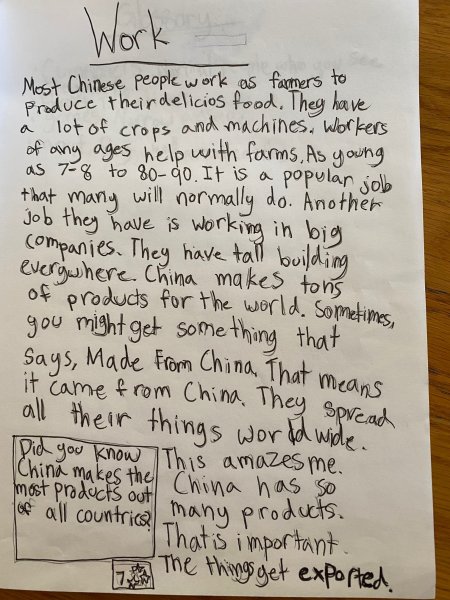 Work
Most Chinese people work as farmers to
produce their delicios food. They have
a lot of crops and machines. Workers
of any ages help with farms. As young
as 7-8 to 80-90. It is a popular job
that many will normally do. Another
job they have is working in big
companies. They have tall building
everywhere. China makes tons
of products for the world. Sometimes,
you might get something that
says, Made From China. That means
it came from China. They spread
all their things worldwide.
This amazes me.
China has so
many products.
That is important.
The things get exported.
Did you know
China makes the
most products out
of all countries?
7